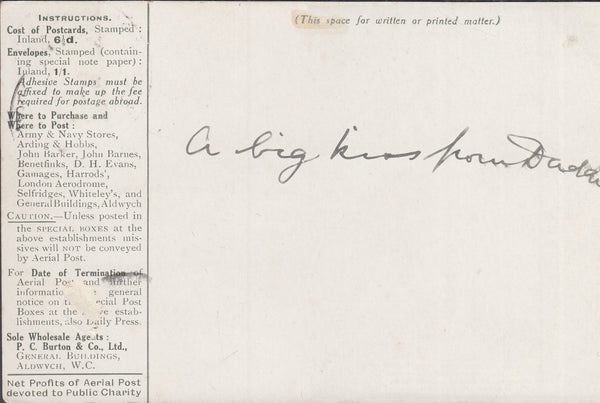 INSTRUCTIONS.
Cost of Postcards, Stamped:
Inland, 6½d.
Envelopes, Stamped (contain-
ing special note paper):
Inland, 1/1.
Adhesive Stamps must be
affixed to make up the fee
required for postage abroad.
Where to Purchase and
Where to Post:
Army & Navy Stores,
Arding & Hobbs,
John Barker, John Barnes,
Benetfinks, D. H. Evans,
Gamages, Harrods',
London Aerodrome,
Selfridges, Whiteley's, and
General Buildings, Aldwych
CAUTION.—Unless posted in
the SPECIAL BOXES at the
above establishments mis-
sives will NOT be conveyed
by Aerial Post.
For Date of Termination of
Aerial Post and further
information general
notice on Special Post
Boxes at the above estab-
lishments, also Daily Press.
Sole Wholesale Agents:
P. C. Burton & Co., Ltd.,
GENERAL BUILDINGS,
ALDWYCH, W.C.
Net Profits of Aerial Post
devoted to Public Charity
(This space for written or printed matter.)
A big kiss from Daddy